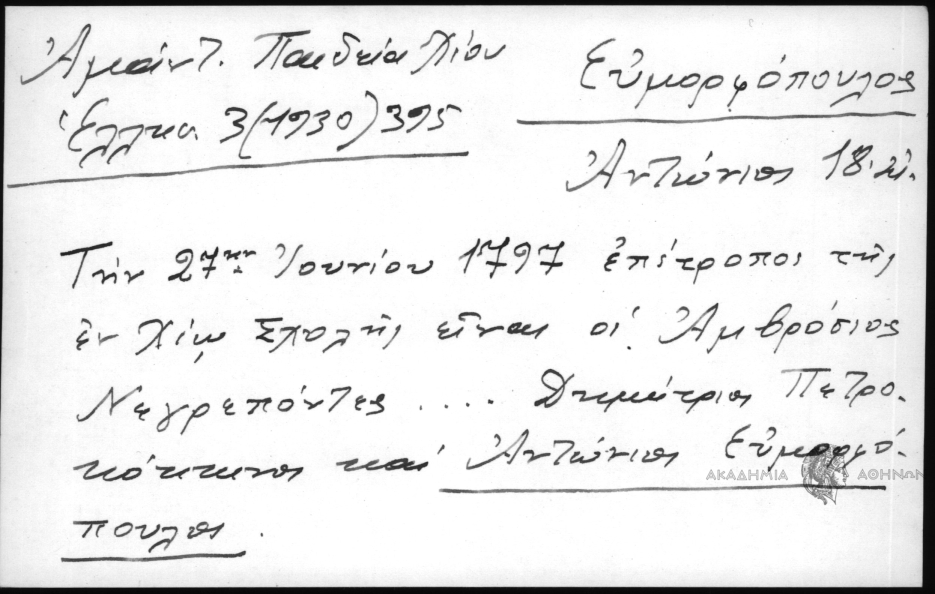 Ἀμάντ. Παιδεία Χίου
Ἑλλκα 3(1930)395
Εὐμορφόπουλος
Ἀντώνιος 18. αἰ.
Τὴν 27ην Ἰουνίου 1797 ἐπίτροποι τῆς
ἐν Χίῳ Σχολῆς εἶναι οἱ Ἀμβρόσιος
Νεγρεπόντες .... Δημήτριος Πετρο-
κόκκινος καὶ Ἀντώνιος Εὐμορφό-
πουλος.
ΑΚΑΔΗΜΙΑ ΑΘΗΝΩΝ